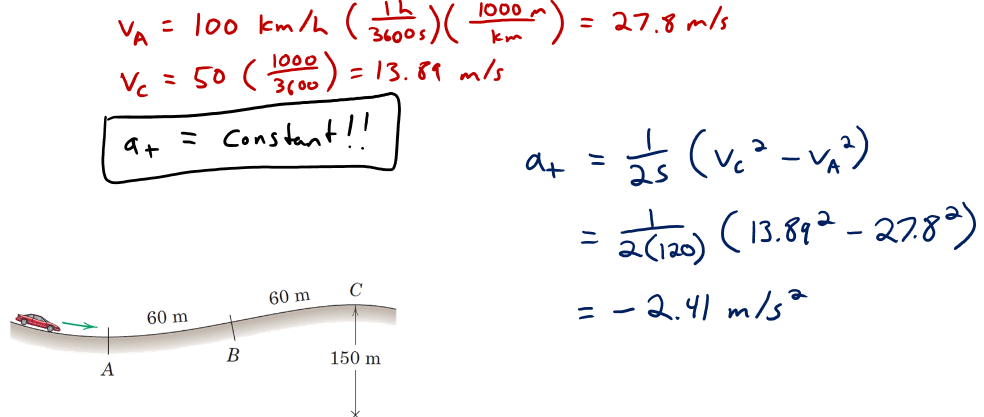 v_A = 100 km/h (1h/3600s)(1000 m/km) = 27.8 m/s
v_C = 50 (1000/3600) = 13.89 m/s
a_t = constant!!
a_t = 1/2s (v_C² - v_A²)
= 1/2(120) (13.89² - 27.8²)
= -2.41 m/s²
60 m
60 m
C
A
B
150 m